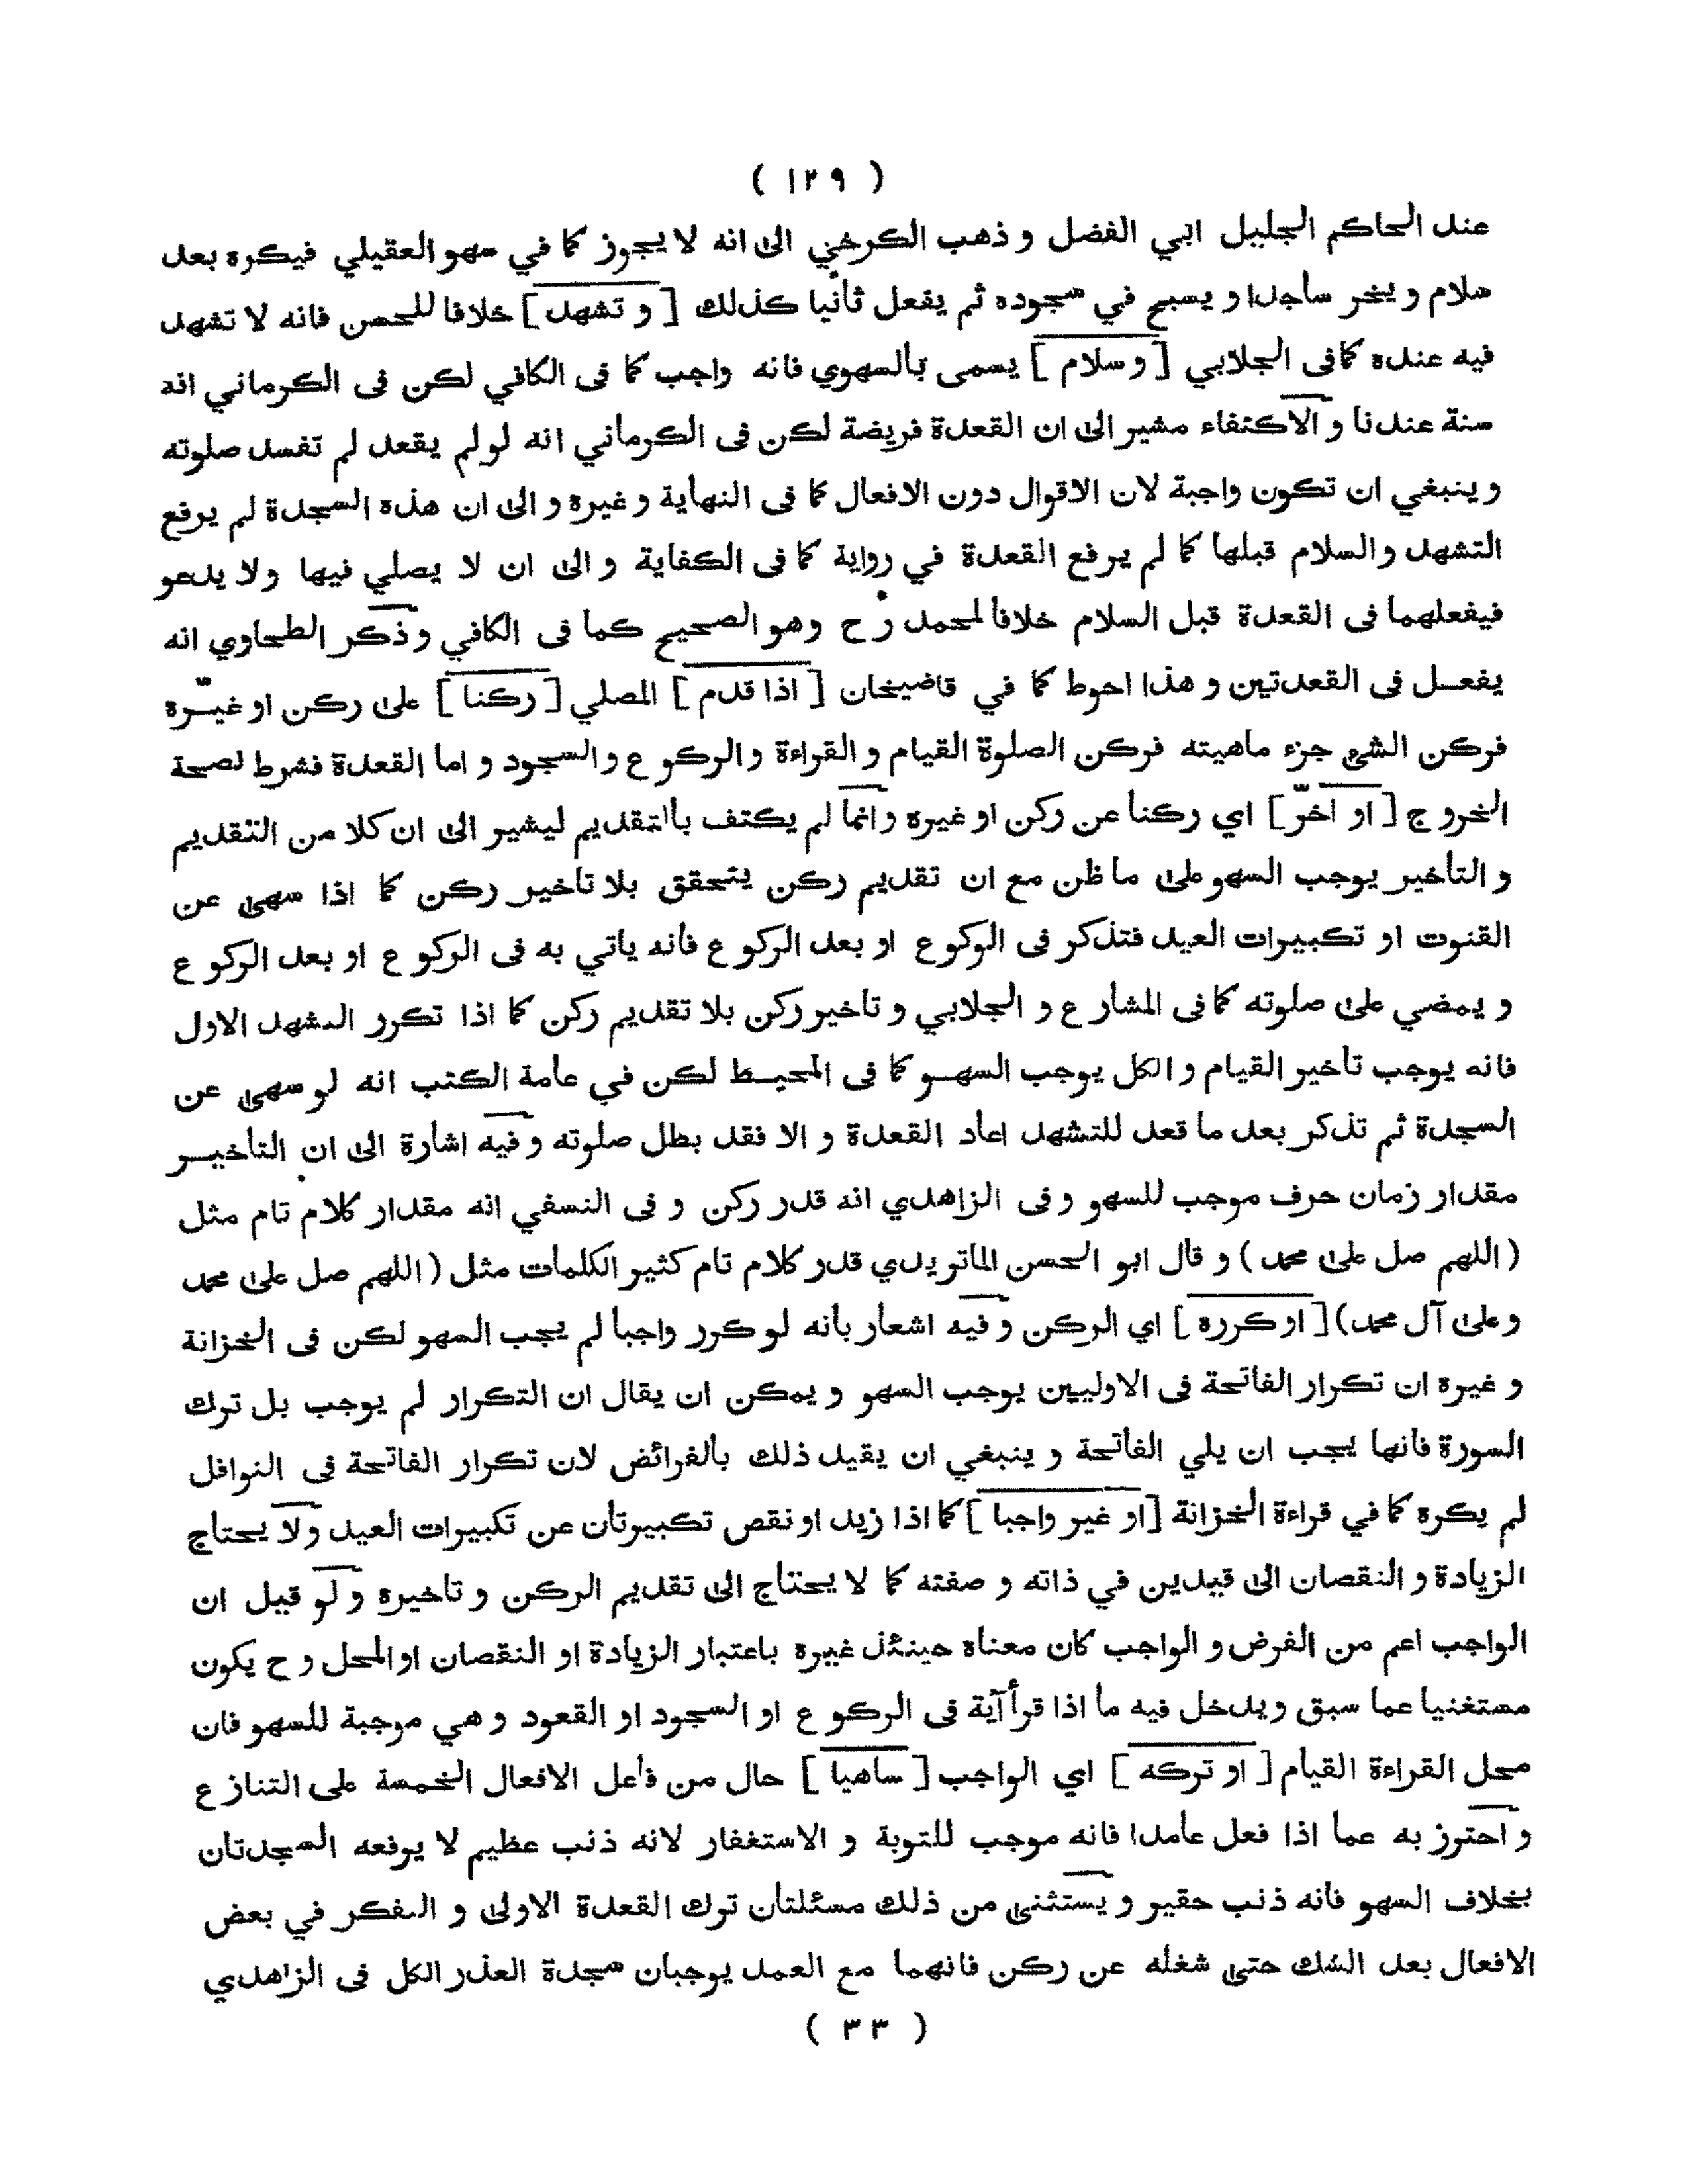 ( ١٢٩ )
عند الحاكم الجليل ابي الفضل و ذهب الكرخي الى انه لا يجوز كما في سهو العقيلي فيكره بعد
سلام و يخر ساجدا و يسبح في سجوده ثم يفعل ثانيا كذلك [ و تشهد ] خلافا للحسن فانه لا تشهد
فيه عنده كما فى الجلابي [ و سلام ] يسمى بالسهوي فانه واجب كما فى الكافي لكن فى الكرماني انه
سنة عندنا و الاكتفاء مشير الى ان القعدة فريضة لكن فى الكرماني انه لو لم يقعد لم تفسد صلوته
و ينبغي ان تكون واجبة لان الاقوال دون الافعال كما فى النهاية و غيره و الى ان هذه السجدة لم يرفع
التشهد و السلام قبلها كما لم يرفع القعدة في رواية كما فى الكفاية و الى ان لا يصلي فيها ولا يدعو
فيفعلهما فى القعدة قبل السلام خلافا لمحمد رح وهو الصحيح كما فى الكافي و ذكر الطحاوي انه
يفعل فى القعدتين و هذا احوط كما في قاضيخان [ اذا قدم ] المصلي [ ركنا ] على ركن او غيره
فركن الشئ جزء ماهيته فركن الصلوة القيام و القراءة و الركوع و السجود و اما القعدة فشرط لصحة
الخروج [ او اخّر ] اي ركنا عن ركن او غيره و انما لم يكتف بالتقديم ليشير الى ان كلا من التقديم
و التأخير يوجب السهو على ما ظن مع ان تقديم ركن يتحقق بلا تاخير ركن كما اذا سهى عن
القنوت او تكبيرات العيد فتذكر فى الركوع او بعد الركوع فانه ياتي به فى الركوع او بعد الركوع
و يمضي على صلوته كما فى المشارع و الجلابي و تاخير ركن بلا تقديم ركن كما اذا تكرر التشهد الاول
فانه يوجب تأخير القيام و الكل يوجب السهو كما فى المحيط لكن في عامة الكتب انه لو سهى عن
السجدة ثم تذكر بعد ما قعد للتشهد اعاد القعدة و الا فقد بطل صلوته و فيه اشارة الى ان التأخير
مقدار زمان حرف موجب للسهو و فى الزاهدي انه قدر ركن و فى النسفي انه مقدار كلام تام مثل
( اللهم صل على محمد ) و قال ابو الحسن الماتريدي قدر كلام تام كثير الكلمات مثل ( اللهم صل على محمد
و على آل محمد) [ او كرره ] اي الركن و فيه اشعار بانه لو كرر واجبا لم يجب السهو لكن فى الخزانة
و غيره ان تكرار الفاتحة فى الاوليين يوجب السهو و يمكن ان يقال ان التكرار لم يوجب بل ترك
السورة فانها يجب ان يلي الفاتحة و ينبغي ان يقيد ذلك بالفرائض لان تكرار الفاتحة فى النوافل
لم يكره كما في قراءة الخزانة [ او غير واجبا ] كما اذا زيد او نقص تكبيرتان عن تكبيرات العيد ولا يحتاج
الزيادة و النقصان الى قيدين في ذاته و صفته كما لا يحتاج الى تقديم الركن و تاخيره و لو قيل ان
الواجب اعم من الفرض و الواجب كان معناه حينئذ غيره باعتبار الزيادة او النقصان او المحل و ح يكون
مستغنيا عما سبق و يدخل فيه ما اذا قرأ آية فى الركوع او السجود او القعود و هي موجبة للسهو فان
محل القراءة القيام [ او تركه ] اي الواجب [ ساهيا ] حال من فاعل الافعال الخمسة على التنازع
و احترز به عما اذا فعل عامدا فانه موجب للتوبة و الاستغفار لانه ذنب عظيم لا يرفعه السجدتان
بخلاف السهو فانه ذنب حقير و يستثنى من ذلك مسئلتان ترك القعدة الاولى و التفكر في بعض
الافعال بعد الشك حتى شغله عن ركن فانهما مع العمد يوجبان سجدة العذر الكل فى الزاهدي
( ٣٣ )